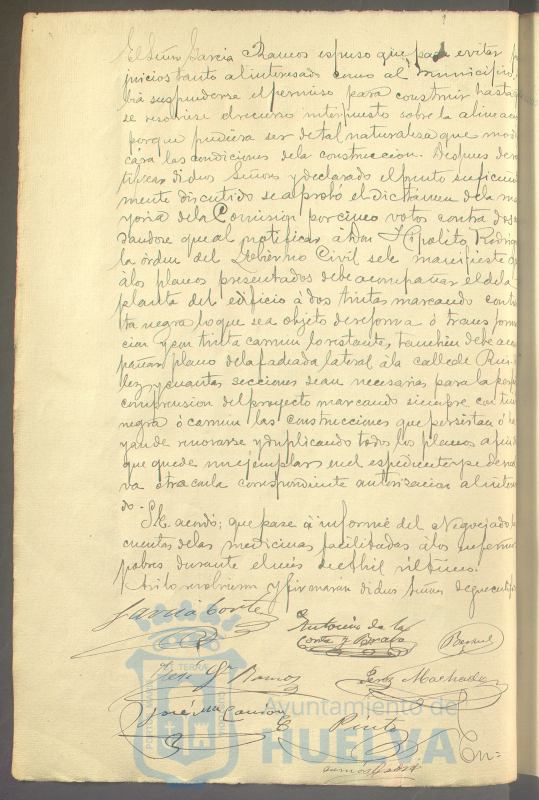 El Señor Garcia Ramos espuso que para evitar
juicios tanto al interesado como al Municipio
bia suspenderse el permiso para construir hasta
se resolviese el recurso interpuesto sobre la alineac
porque pudiera ser de tal naturalesa que mo
cára las condiciones de la construccion. Despues de
tificar dichos Señores y declarado el punto suficien
mente discutido se aprobó el dictámen de la ma
yoria de la Comision por cinco votos contra dos
dandose que al notificar á Don Hipolito Rodrig
la órden del Gobierno Civil se le manifieste
á los planos presentados debe acompañar el de la
planta del edificio á dos tintas marcando con ti
ta negra lo que sea objeto de reforma ó transform
cion y en tinta carmin lo restante, tambien debe acom
pañar plano de la fachada lateral á la calle de
y cuantas secciones sean necesarias para la
comprension del proyecto marcando siempre con tin
negra ó carmin las construcciones que persistan ó ha
yan de renovarse y duplicando todos los planos a fin de
que quede un ejemplar en el espediente y se de
va otra con la correspondiente autorizacion al intere
do.
Se acordó; que pase á informe del Negociado la
cuenta de las medicinas facilitadas á los enfermos
pobres durante el mes de Abril último.
Asi lo resolvieron y firmarán dichos Señores de que certifico
Garcia Corte
Antonio de la
Corte y Bravo
José Ga Ramos
Machado
José Ma
Pinto
Ayuntamiento de
HUELVA